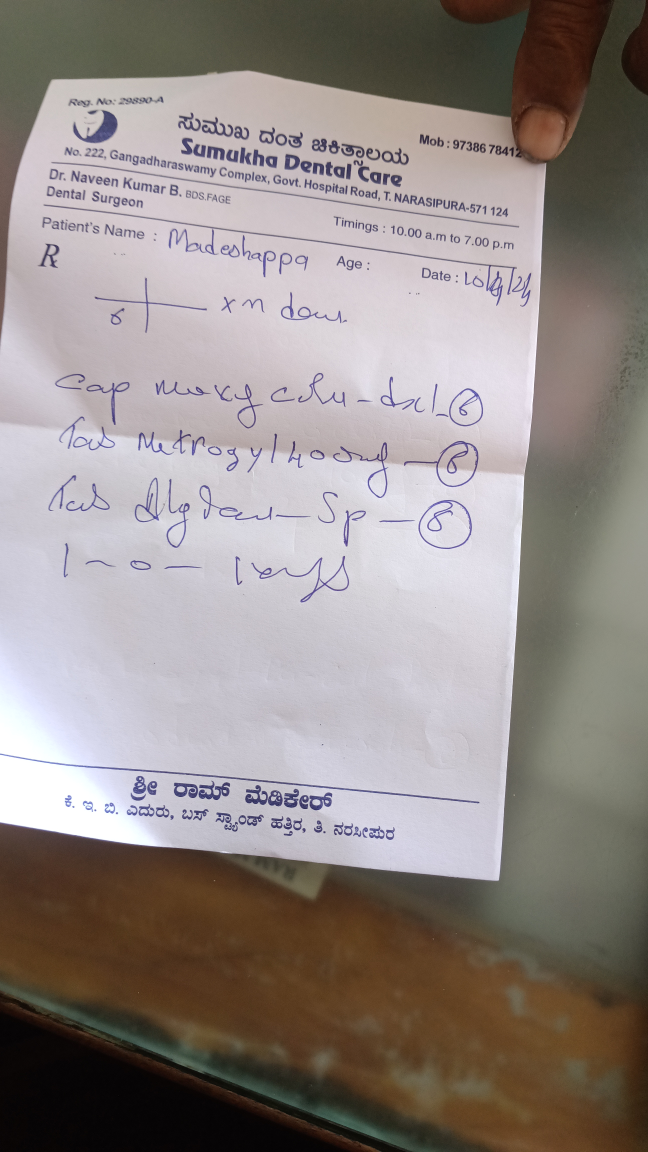 Reg. No: 29890-A
Mob : 97386 78412
ಸುಮುಖ ದಂತ ಚಿಕಿತ್ಸಾಲಯ
Sumukha Dental Care
No. 222, Gangadharaswamy Complex, Govt. Hospital Road, T. NARASIPURA-571 124
Dr. Naveen Kumar B. BDS.FAGE
Dental Surgeon
Timings : 10.00 a.m to 7.00 p.m
Patient's Name : Madeshappa Age : Date :
℞
6 x n
Cap - 6
Tab Metrogyl 400mg - 6
Tab - Sp - 6
1 - 0 - 1
ಶ್ರೀ ರಾಮ್ ಮೆಡಿಕೇರ್
ಕೆ. ಇ. ಬಿ. ಎದುರು, ಬಸ್ ಸ್ಟ್ಯಾಂಡ್ ಹತ್ತಿರ, ತಿ. ನರಸೀಪುರ